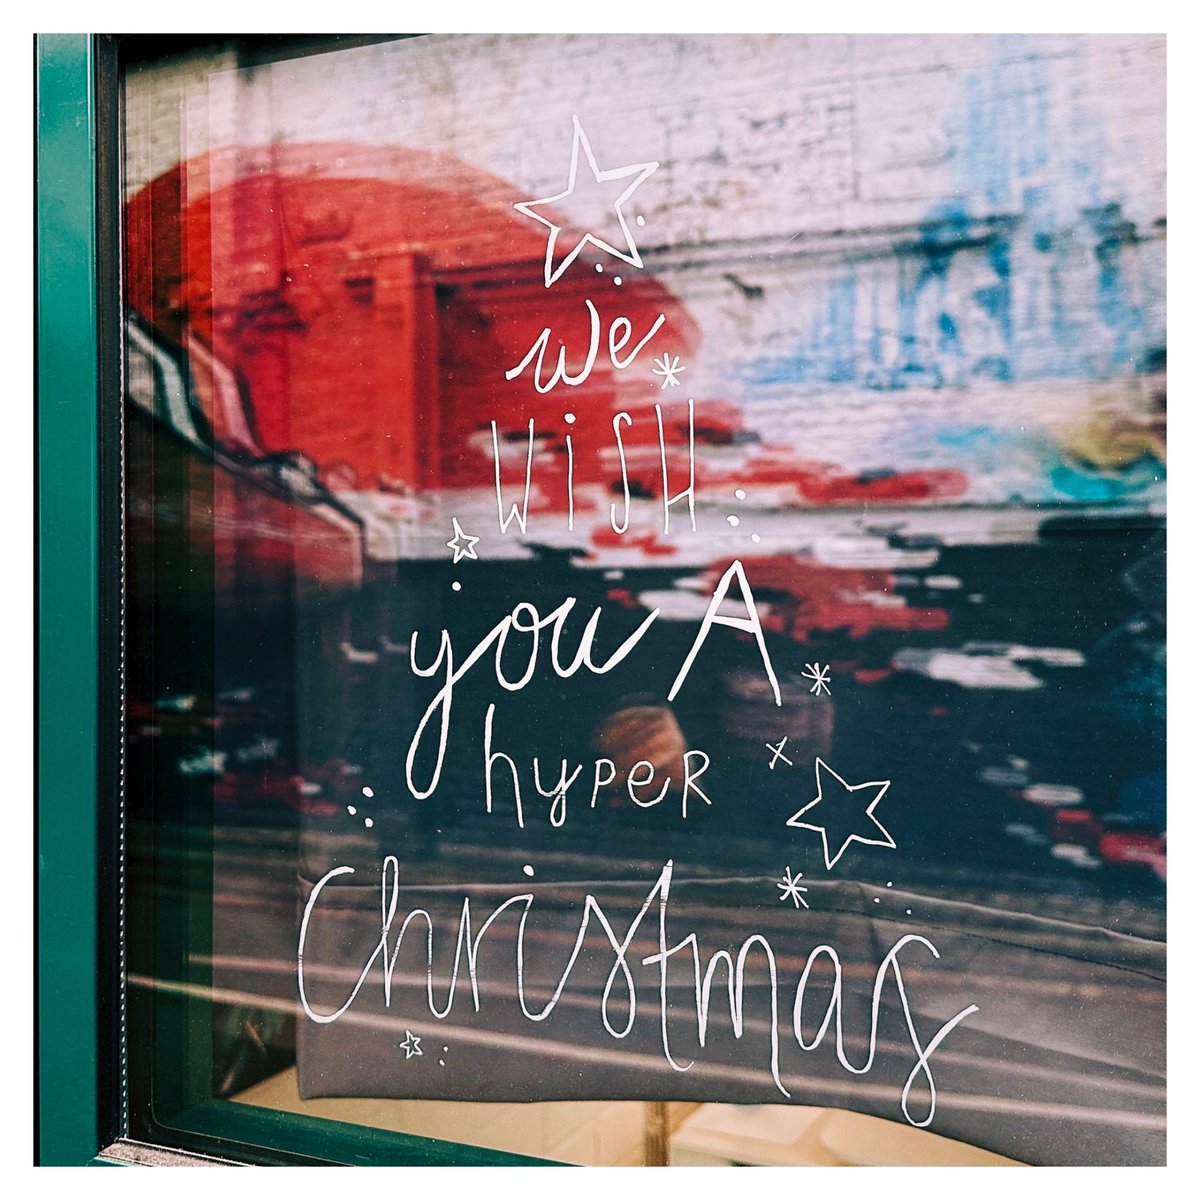 we
WiSH
you A
hyPeR
Christmas